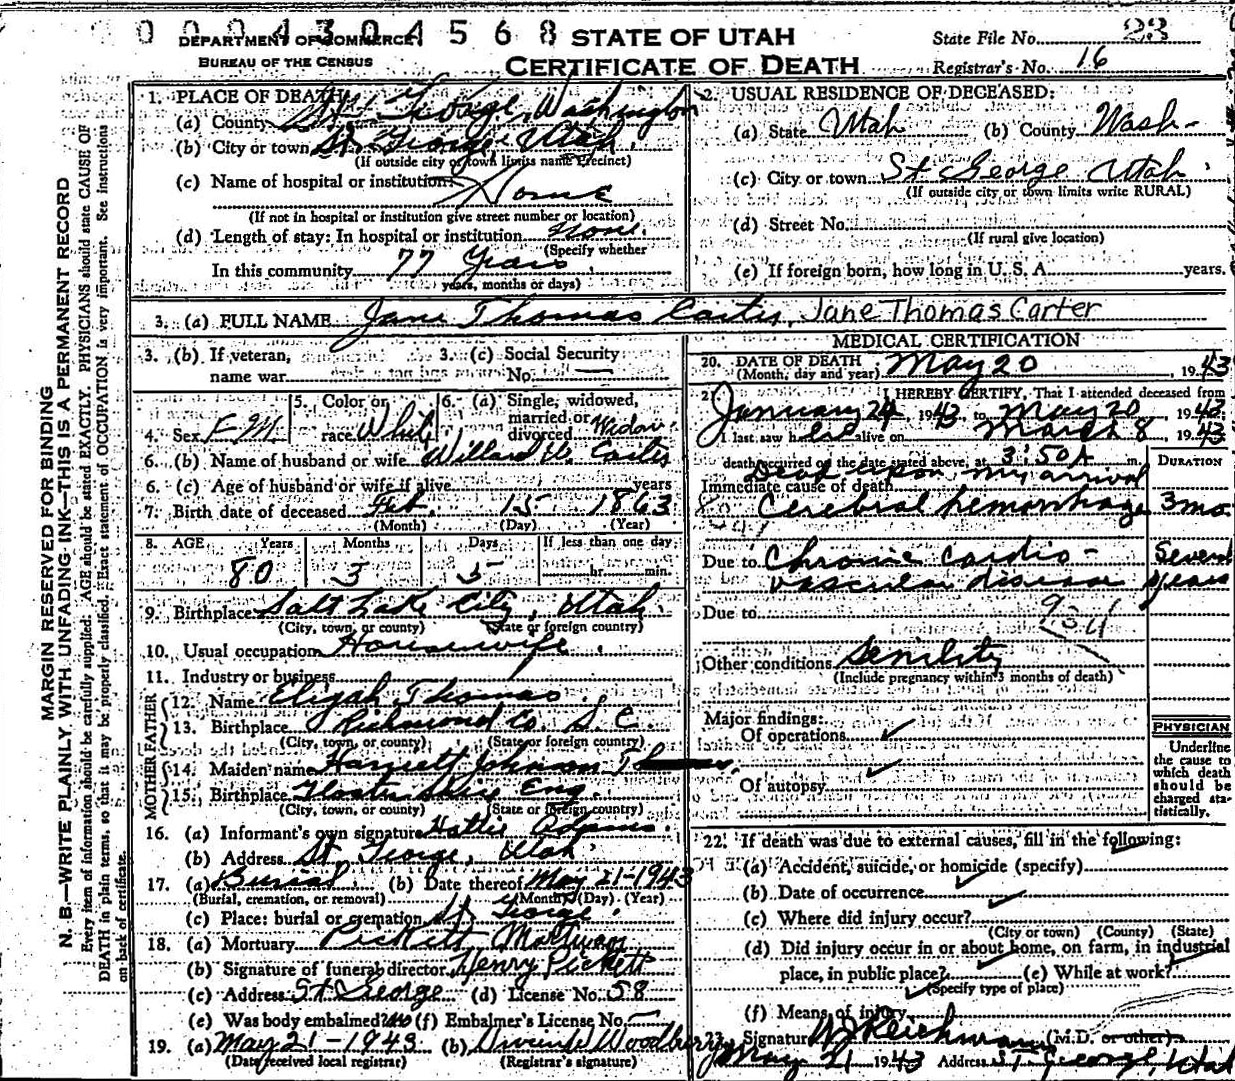 0 0 0 4 3 0 4 5 6 8
DEPARTMENT OF COMMERCE
BUREAU OF THE CENSUS
STATE OF UTAH
CERTIFICATE OF DEATH
State File No. 23
Registrar's No. 16
MARGIN RESERVED FOR BINDING
N. B.—WRITE PLAINLY, WITH UNFADING INK—THIS IS A PERMANENT RECORD
Every item of information should be carefully supplied. AGE should be stated EXACTLY. PHYSICIANS should state CAUSE OF
DEATH in plain terms, so that it may be properly classified. Exact statement of OCCUPATION is very important. See instructions
on back of certificate.
1. PLACE OF DEATH:
(a) County St George, Washington
(b) City or town St. George, Utah.
(If outside city or town limits name Precinct)
(c) Name of hospital or institution:
Home
(If not in hospital or institution give street number or location)
(d) Length of stay: In hospital or institution None.
(Specify whether
In this community 77 Years
years, months or days)
2. USUAL RESIDENCE OF DECEASED:
(a) State Utah (b) County Wash-
(c) City or town St George Utah.
(If outside city or town limits write RURAL)
(d) Street No.
(If rural give location)
(e) If foreign born, how long in U. S. A. years.
3. (a) FULL NAME Jane Thomas Carter, Jane Thomas Carter
3. (b) If veteran,
name war
3. (c) Social Security
No. —
4. Sex FM
5. Color or
race White
6. (a) Single, widowed,
married or
divorced Widow.
6. (b) Name of husband or wife Willard W. Carter
6. (c) Age of husband or wife if alive years
7. Birth date of deceased Feb. 15 1863
(Month) (Day) (Year)
8. AGE Years Months Days If less than one day
80 3 5 hr. min.
9. Birthplace Salt Lake City, Utah.
(City, town, or county) (State or foreign country)
10. Usual occupation Housewife.
11. Industry or business
FATHER
12. Name Elijah Thomas
13. Birthplace Richmond Co. S. C.
(City, town, or county) (State or foreign country)
MOTHER
14. Maiden name Harriett Johnson
15. Birthplace Shire Eng.
(City, town, or county) (State or foreign country)
16. (a) Informant's own signature Hattie Adams.
(b) Address St George, Utah
17. (a) Burial (b) Date thereof May 21-1943
(Burial, cremation, or removal) (Month) (Day) (Year)
(c) Place: burial or cremation St George.
18. (a) Mortuary Pickett Mortuary
(b) Signature of funeral director Henry Pickett
(c) Address St George (d) License No. 58
(e) Was body embalmed? No (f) Embalmer's License No. —
19. (a) May 21-1943 (b) Woodbury
(Date received local registrar) (Registrar's signature)
MEDICAL CERTIFICATION
20. DATE OF DEATH
(Month, day and year) May 20, 1943
21. I HEREBY CERTIFY, That I attended deceased from
January 24 1943 to May 20, 1943
I last saw her alive on March 8, 1943
death occurred on the date stated above, at 3:50 A m.
Dead upon my arrival
Immediate cause of death
DURATION
Cerebral hemorrhage 3 mo.
Due to Chronic cardio-
vascular disease
Several years
Due to
Other conditions Senility
(Include pregnancy within 3 months of death)
Major findings:
Of operations
Of autopsy
PHYSICIAN
Underline
the cause to
which death
should be
charged sta-
tistically.
22. If death was due to external causes, fill in the following:
(a) Accident, suicide, or homicide (specify)
(b) Date of occurrence
(c) Where did injury occur?
(City or town) (County) (State)
(d) Did injury occur in or about home, on farm, in industrial
place, in public place? (e) While at work?
(Specify type of place)
(f) Means of injury
23. Signature W J Reichmann (M.D. or other)
May 21 1943 Address St. George, Utah